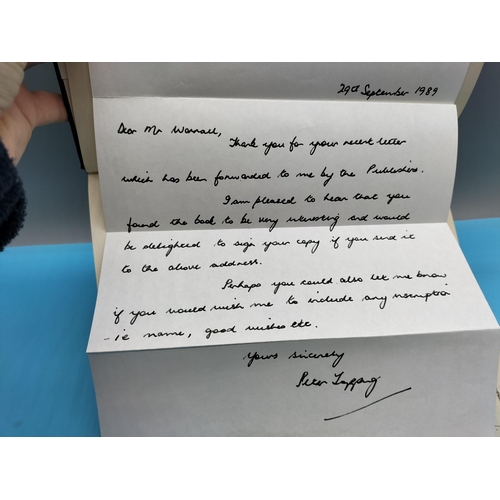 29th September 1989
Dear Mr
Thank you for your recent letter
which has been forwarded to me by the Publishers.
I am pleased to hear that you
found the book to be very interesting and would
be delighted to sign your copy if you send it
to the above address.
Perhaps you could also let me know
if you would wish me to include any inscription
- ie name, good wishes etc.
Yours sincerely
Peter